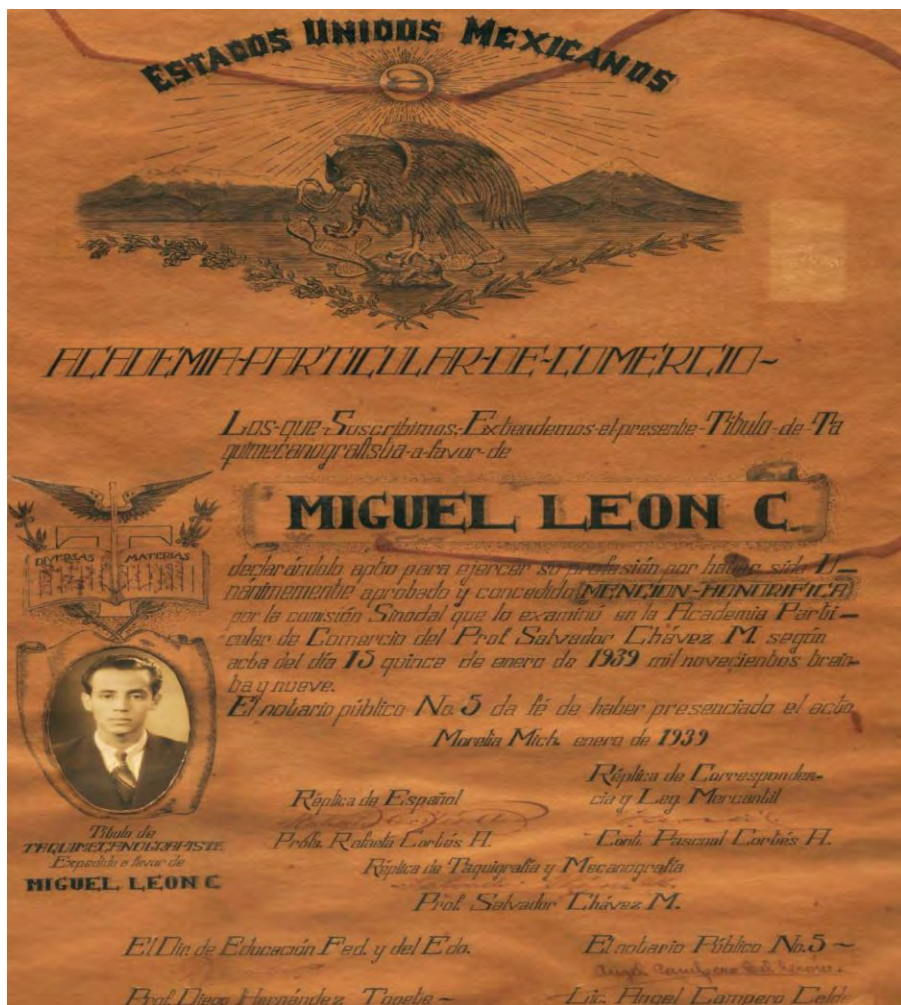 ESTADOS UNIDOS MEXICANOS
ACADEMIA-PARTICULAR-DE-COMERCIO-
Los-que-Suscribimos,-Extendemos-el-presente-Título-de-Ta
quimecanografista-a-favor-de
MIGUEL LEON C.
DIVERSAS MATERIAS
declarándolo apto para ejercer su profesión por haber sido U-
nánimemente aprobado y concedido MENCION-HONORIFICA
por la comisión Sinodal que lo examinó en la Academia Parti-
cular de Comercio del Prof. Salvador Chávez M. según
acta del día 15 quince de enero de 1939 mil novecientos trein-
ta y nueve.
El notario público No. 5 da fé de haber presenciado el acto
Morelia Mich. enero de 1939
Título de
TAQUIMECANOGRAFISTE
Expedido a favor de
MIGUEL LEON C
Réplica de Español
Profa. Rafaela Cortés A.
Réplica de Corresponden-
cia y Leg. Mercantil
Cont. Pascual Cortés A.
Réplica de Taquigrafía y Mecanografía
Prof. Salvador Chávez M.
El Dir. de Educación Fed. y del Edo.
Prof. Diego Hernández Topete-
El notario Público No. 5-
Lic. Angel Campero Cald